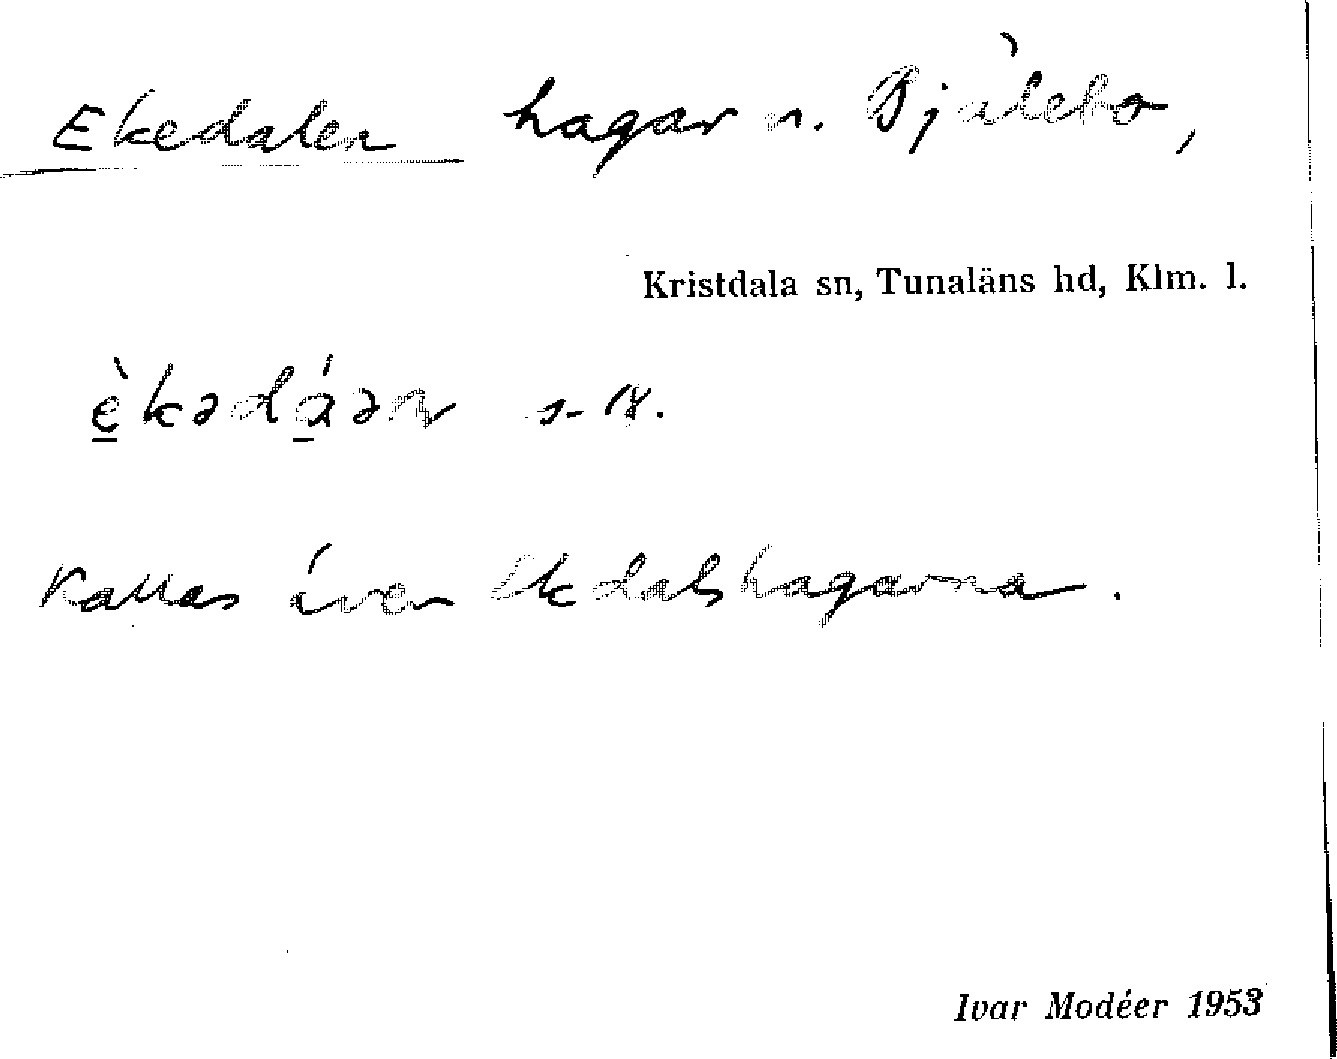 Ekedalen hagar n. Bjälebo,
Kristdala sn, Tunaläns hd, Klm. l.
èkədáən
Kallas även Ekdalshagarna.
Ivar Modéer 1953